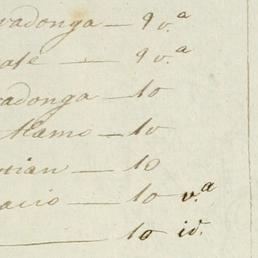 vadonga — 9 v.ª
ate — 9 v.ª
adonga — 10
Alamo — 10
tian — 10
acio — 10 v.ª
— 10 id.